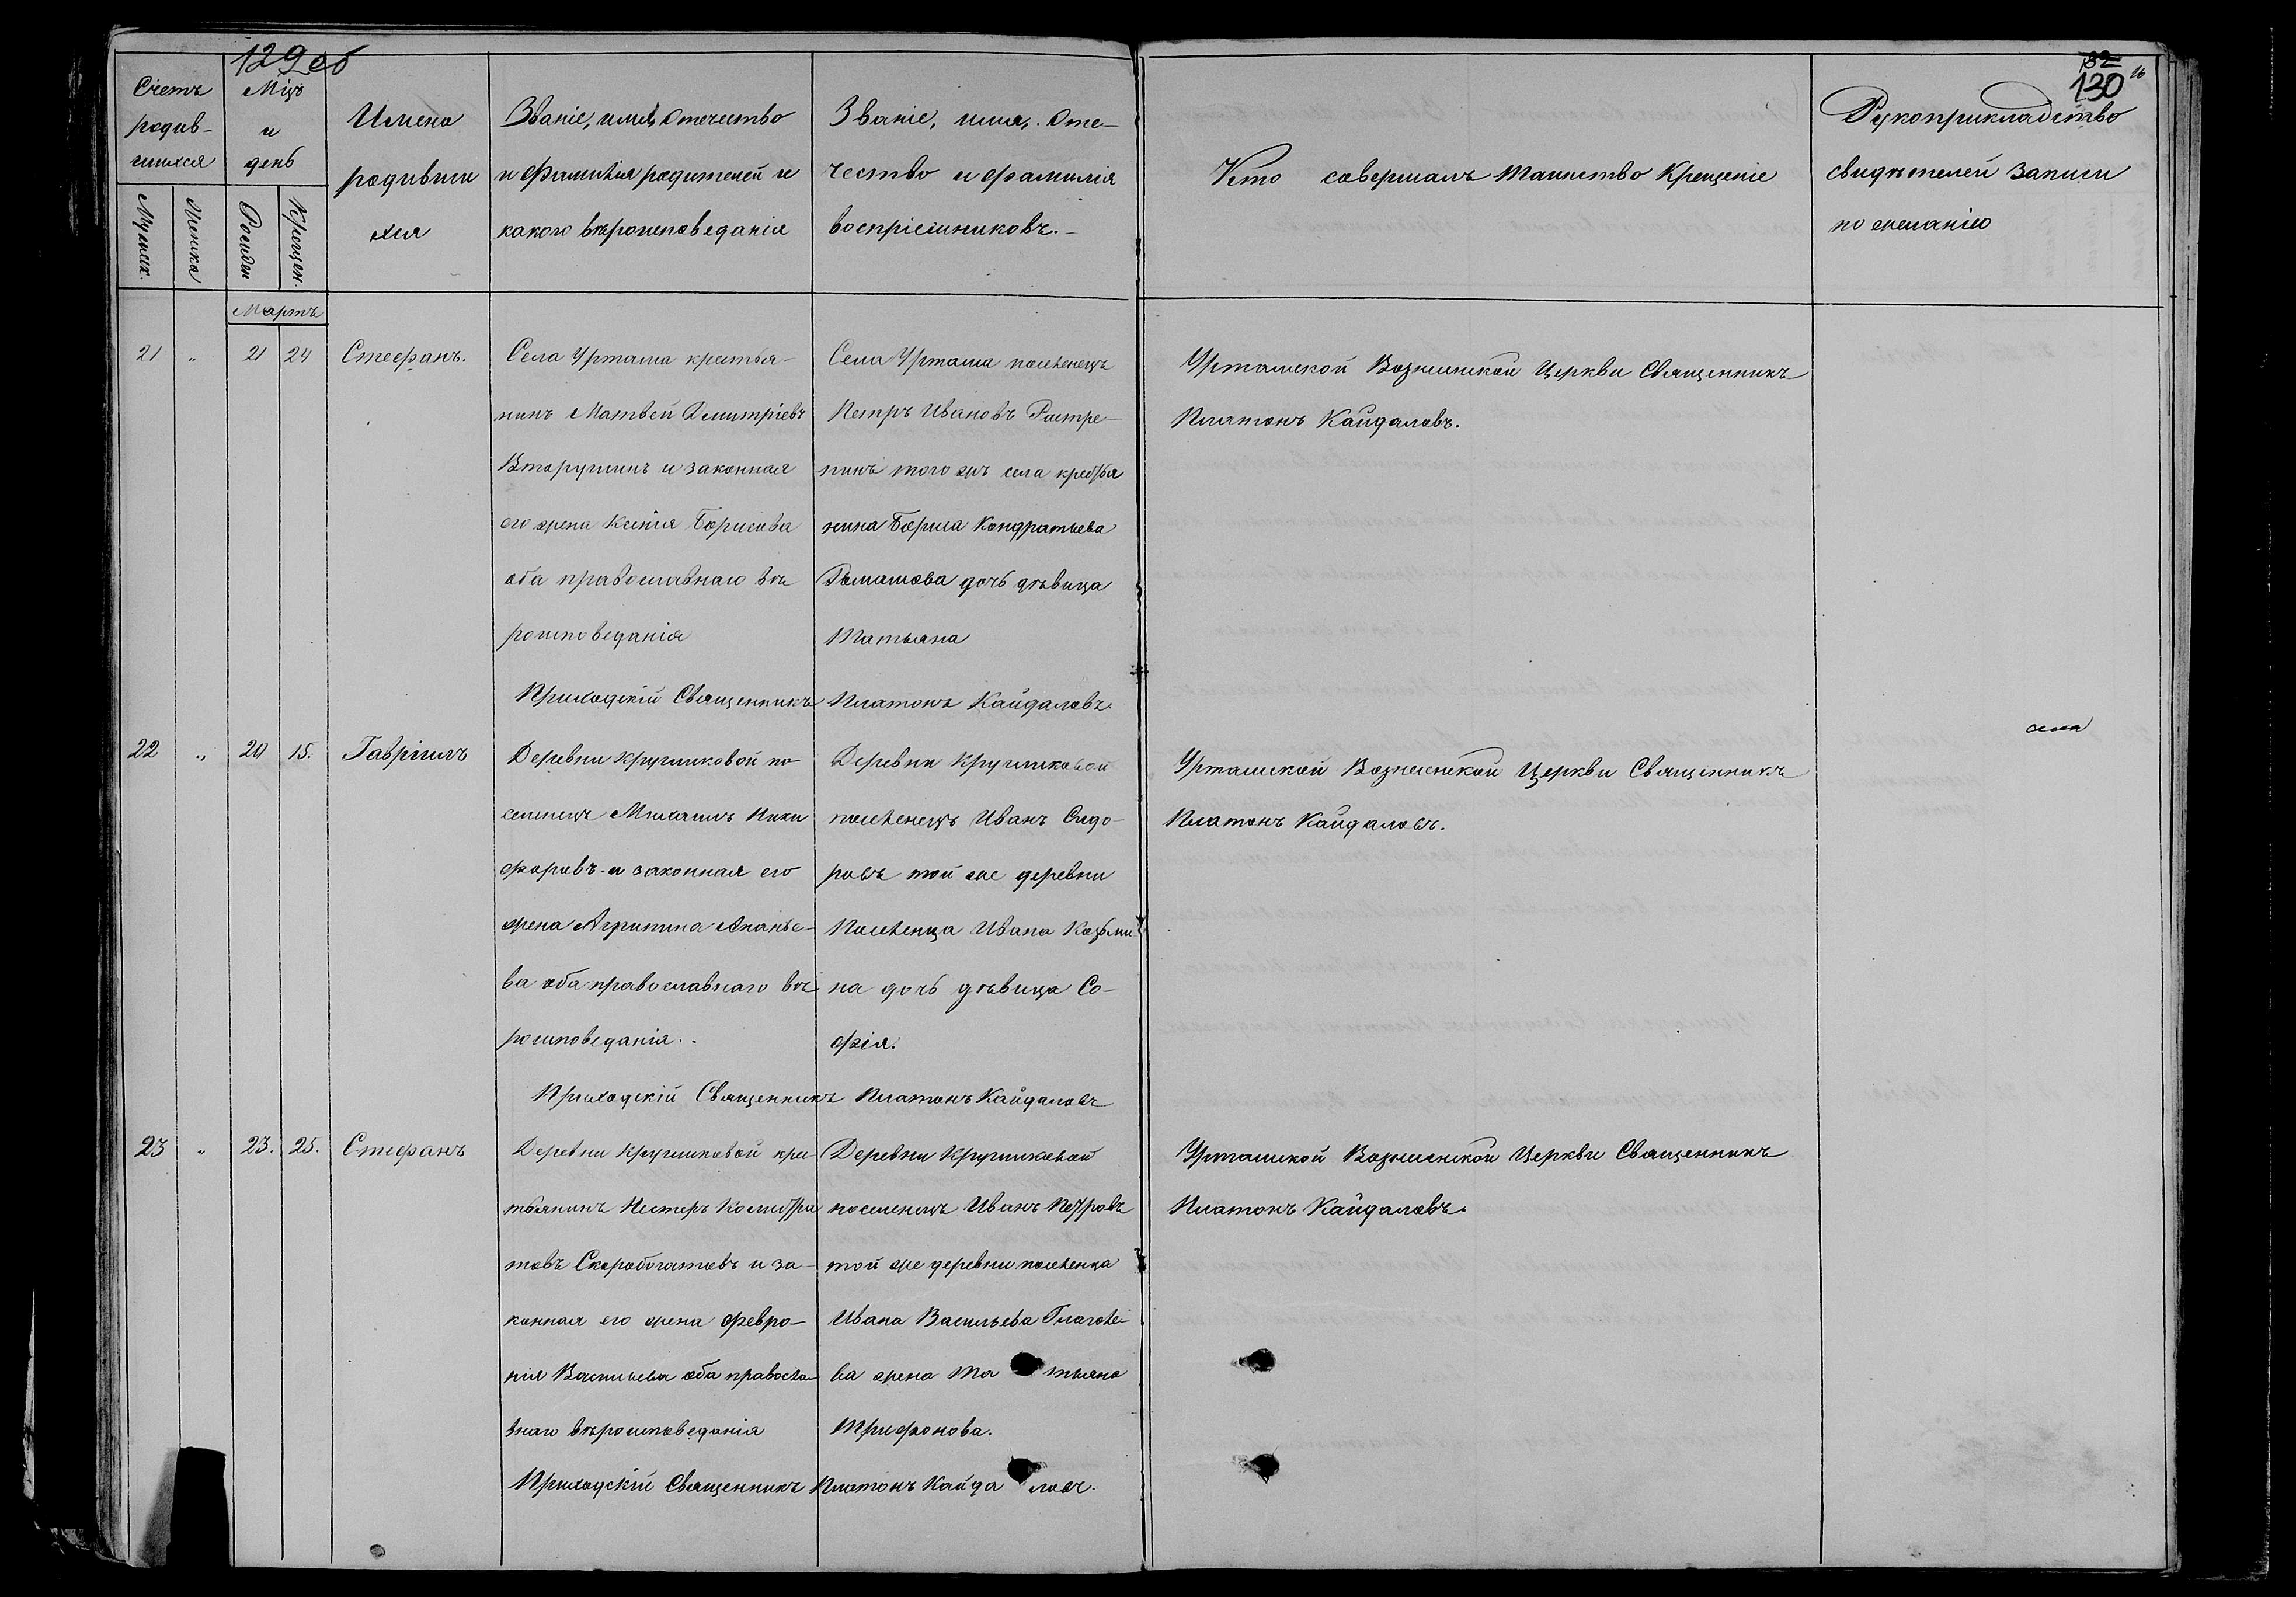 129 об
132
130
26
Счетъ
родив-
шихся
Мужеск.
Женска
Мцъ
и
день
Рожден
Крещен.
Имена
родивши
хся
Званіе, имя, отечество
и фамилія родителей и
какого вѣроисповеданія
Званіе, имя, Оте-
чество и фамилія
воспріемниковъ.-
Кто совершалъ таинство Крещеніе
Рукоприкладство
свидѣтелей записи
по желанію
Мартъ
21 " 21 24 Стефанъ.
Села Уртама крестья-
нинъ Матвей Дмитріевъ
Вторушинъ и законная
его жена Ксенія Борисова
оба православнаго вѣ
роисповеданія
Села Уртама поселенецъ
Петръ Ивановъ Растре-
пинъ того жъ села крестья
нина Бориса Кондратьева
дочь дѣвица
Татьяна
Уртамской Вознесенской Церкви Священникъ
Платонъ Кайдаловъ.
Приходскій Священникъ Платонъ Кайдаловъ
22 " 20 15. Гавріилъ
Деревни Кругликовой по-
селенецъ Михаилъ Ники
форовъ и законная его
жена Агрипина Ананье-
ва оба православнаго вѣ
роисповеданія.
Деревни Кругликовой
поселенецъ Иванъ Сидо-
ровъ той же деревни
Поселенца Ивана Козьми
на дочь дѣвица Со-
фія.
Уртамской Вознесенской Церкви Священникъ
Платонъ Кайдаловъ.
Приходскій Священникъ Платонъ Кайдаловъ
23 " 23. 25. Стефанъ
Деревни Кругликовой кре-
стьянинъ Нестеръ
Скоробогатовъ и за-
конная его жена Февро-
нія Васильева оба правосла
внаго вѣроисповеданія
Деревни Кругликовой
поселенецъ Иванъ Петровъ
той же деревни поселенца
Ивана Васильева
ва жена Татьяна
Трифонова.
Уртамской Вознесенской Церкви Священникъ
Платонъ Кайдаловъ.
Приходскій Священникъ Платонъ Кайдаловъ.